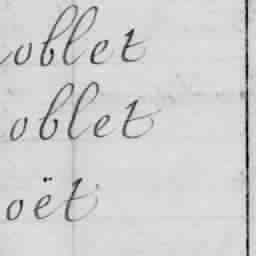 oblet
oblet
oët